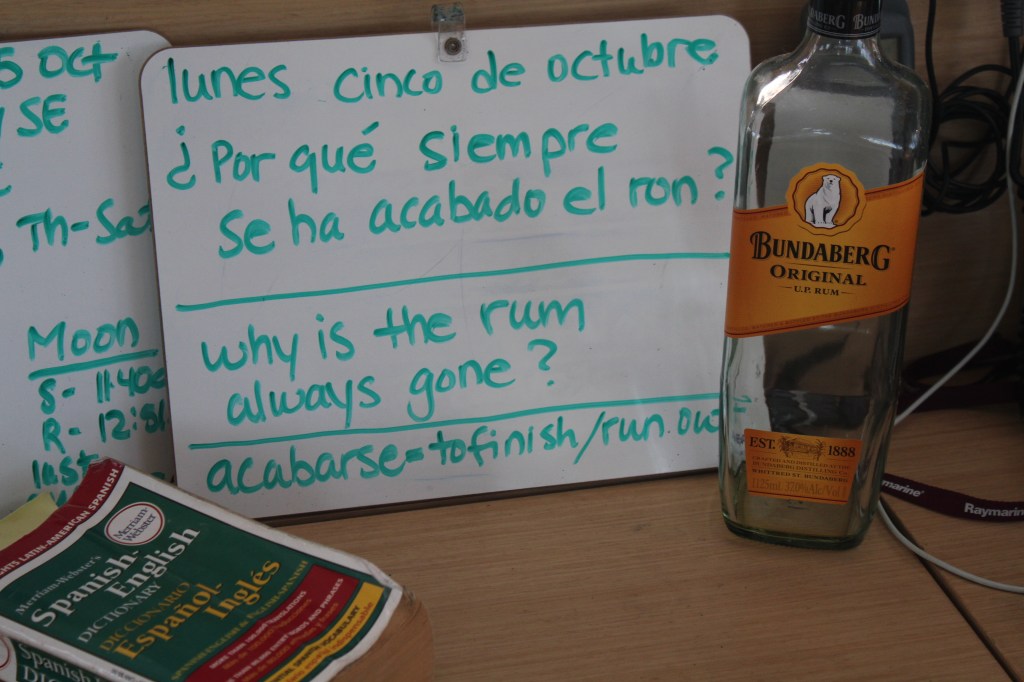 5 OCT
SE
Th-Sa
Moon
S- 11:40
R- 12:
last
lunes cinco de octubre
¿Por qué siempre
se ha acabado el ron?
why is the rum
always gone?
acabarse=to finish/run.ou
BUNDABERG
BUNDABERG
ORIGINAL
U.P. RUM
EST. 1888
1125ml 37.0% Alc/Vol
marine®
Raymarin
LATIN-AMERICAN SPANISH
Merriam-Webster
Merriam-Webster's
Spanish-
English
DICTIONARY
DICCIONARIO
Español-
Inglés
Spanish